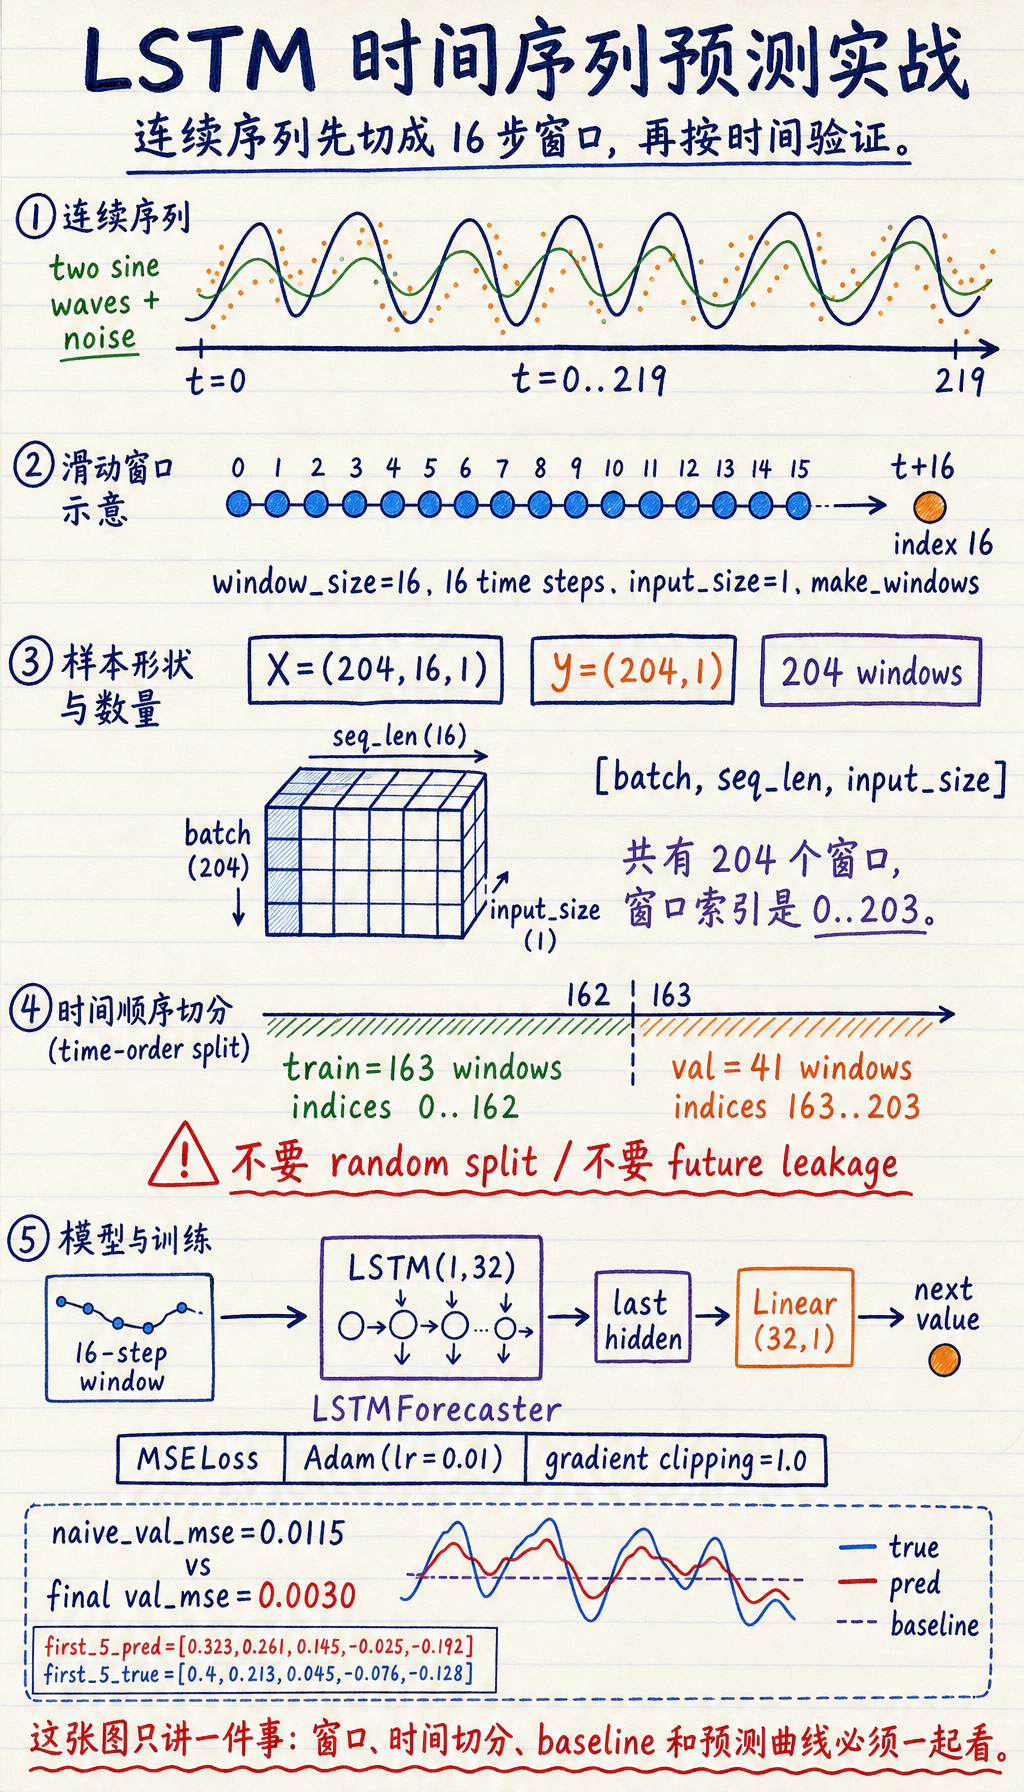 LSTM 时间序列预测实战
连续序列先切成 16 步窗口, 再按时间验证。
① 连续序列
two sine
waves +
noise
t=0
t=0..219
219
② 滑动窗口
示意
0 1 2 3 4 5 6 7 8 9 10 11 12 13 14 15
t+16
index 16
window_size=16, 16 time steps, input_size=1, make_windows
③ 样本形状
与数量
X=(204,16,1)
y=(204,1)
204 windows
seq_len(16)
batch
(204)
input_size
(1)
[batch, seq_len, input_size]
共有 204 个窗口,
窗口索引是 0..203。
④ 时间顺序切分
(time-order split)
162
163
train=163 windows
indices 0..162
val=41 windows
indices 163..203
! 不要 random split / 不要 future leakage
⑤ 模型与训练
16-step
window
LSTM(1,32)
...
LSTMForecaster
last
hidden
Linear
(32,1)
next
value
MSELoss
Adam(lr=0.01)
gradient clipping=1.0
naive_val_mse=0.0115
vs
final val_mse=0.0030
first_5_pred=[0.323,0.261,0.145,-0.025,-0.192]
first_5_true=[0.4,0.213,0.045,-0.076,-0.128]
true
pred
baseline
这张图只讲一件事: 窗口、时间切分、baseline 和预测曲线必须一起看。